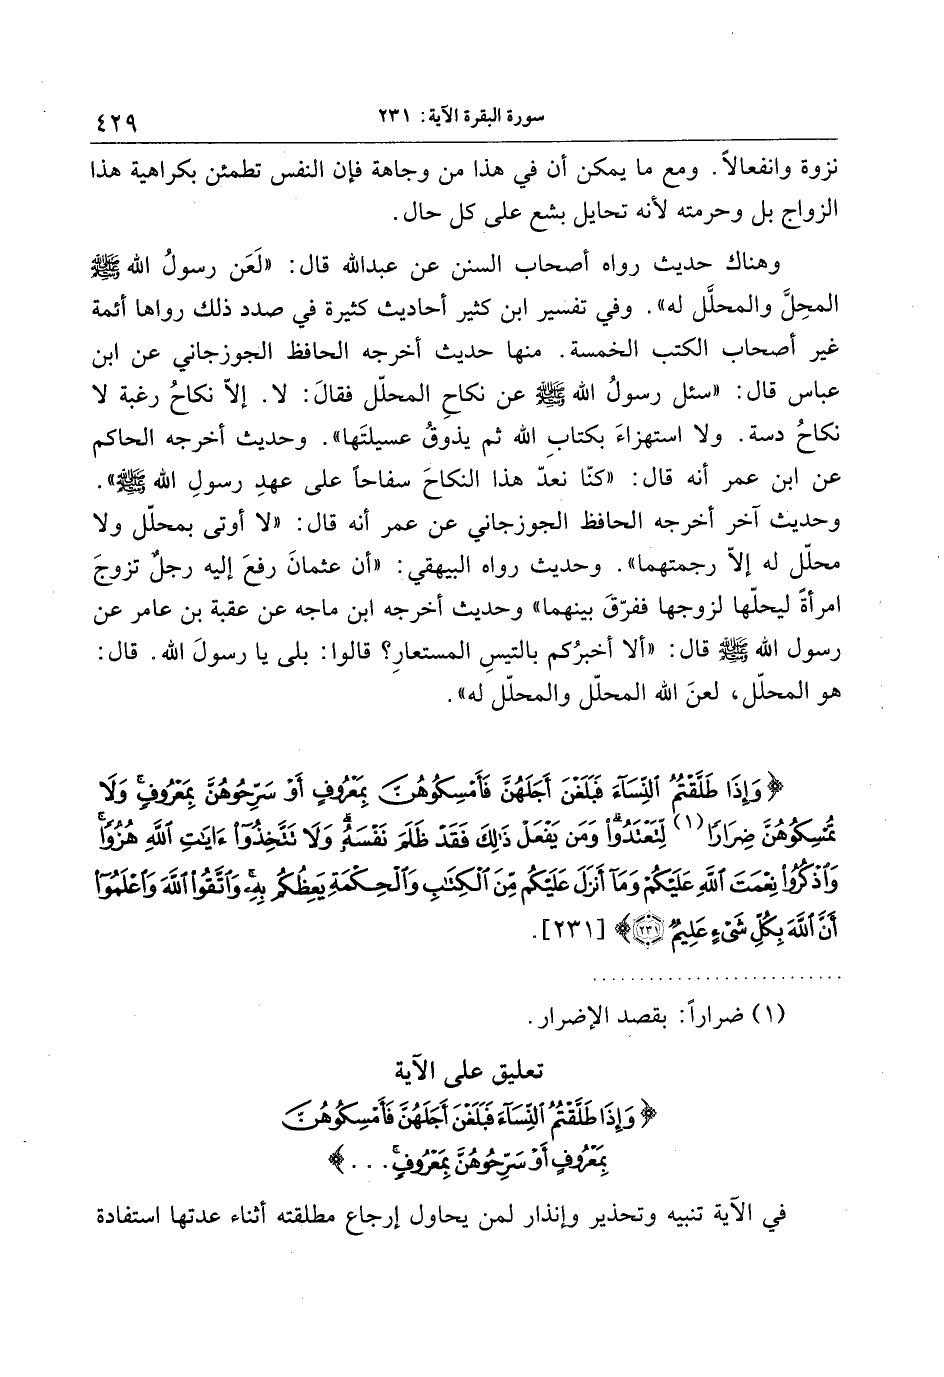 سورة البقرة الآية: ٢٣١
٤٢٩
نزوة وانفعالاً. ومع ما يمكن أن في هذا من وجاهة فإن النفس تطمئن بكراهية هذا
الزواج بل وحرمته لأنه تحايل بشع على كل حال.
وهناك حديث رواه أصحاب السنن عن عبدالله قال: «لَعَن رسولُ الله ﷺ
المحِلَّ والمحلَّل له». وفي تفسير ابن كثير أحاديث كثيرة في صدد ذلك رواها أئمة
غير أصحاب الكتب الخمسة. منها حديث أخرجه الحافظ الجوزجاني عن ابن
عباس قال: «سئل رسولُ الله ﷺ عن نكاحِ المحلّل فقالَ: لا. إلاّ نكاحُ رغبة لا
نكاحُ دسة. ولا استهزاءَ بكتابِ الله ثم يذوقُ عسيلتَها». وحديث أخرجه الحاكم
عن ابن عمر أنه قال: «كنّا نعدّ هذا النكاحَ سفاحاً على عهدِ رسولِ الله ﷺ».
وحديث آخر أخرجه الحافظ الجوزجاني عن عمر أنه قال: «لا أوتى بمحلّل ولا
محلّل له إلاّ رجمتهما». وحديث رواه البيهقي: «أن عثمانَ رفعَ إليه رجلٌ تزوجَ
امرأةً ليحلّها لزوجها ففرّقَ بينهما» وحديث أخرجه ابن ماجه عن عقبة بن عامر عن
رسول الله ﷺ قال: «ألا أخبرُكم بالتيسِ المستعارِ؟ قالوا: بلى يا رسولَ الله. قال:
هو المحلّل، لعنَ الله المحلّل والمحلّل له».
﴿وَإِذَا طَلَّقْتُمُ ٱلنِّسَآءَ فَبَلَغْنَ أَجَلَهُنَّ فَأَمْسِكُوهُنَّ بِمَعْرُوفٍ أَوْ سَرِّحُوهُنَّ بِمَعْرُوفٍۚ وَلَا
تُمْسِكُوهُنَّ ضِرَارًا (١) لِّتَعْتَدُوا۟ۚ وَمَن يَفْعَلْ ذَٰلِكَ فَقَدْ ظَلَمَ نَفْسَهُۥۚ وَلَا تَتَّخِذُوٓا۟ ءَايَٰتِ ٱللَّهِ هُزُوًاۚ
وَٱذْكُرُوا۟ نِعْمَتَ ٱللَّهِ عَلَيْكُمْ وَمَآ أَنزَلَ عَلَيْكُم مِّنَ ٱلْكِتَٰبِ وَٱلْحِكْمَةِ يَعِظُكُم بِهِۦۚ وَٱتَّقُوا۟ ٱللَّهَ وَٱعْلَمُوٓا۟
أَنَّ ٱللَّهَ بِكُلِّ شَىْءٍ عَلِيمٌ ٢٣١﴾ [٢٣١].
(١) ضراراً: بقصد الإضرار.
تعليق على الآية
﴿وَإِذَا طَلَّقْتُمُ ٱلنِّسَآءَ فَبَلَغْنَ أَجَلَهُنَّ فَأَمْسِكُوهُنَّ
بِمَعْرُوفٍ أَوْ سَرِّحُوهُنَّ بِمَعْرُوفٍۚ . . . ﴾
في الآية تنبيه وتحذير وإنذار لمن يحاول إرجاع مطلقته أثناء عدتها استفادة